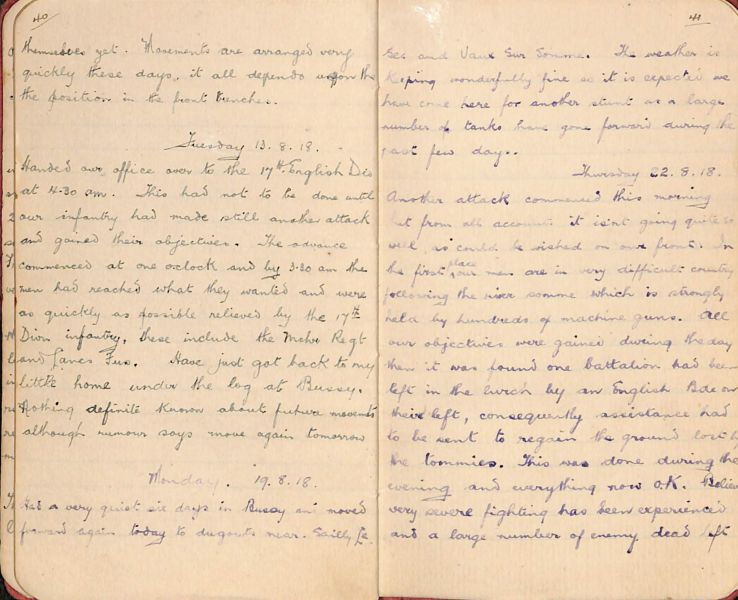 40
themselves yet. Movements are arranged very
quickly these days, it all depends upon the
the position in the front trenches.
Tuesday 13.8.18.
Handed our office over to the 17th English Div
at 4-30 am. This had not to be done until
our infantry had made still another attack
and gained their objectives. The advance
commenced at one oclock and by 3-30 am the
men had reached what they wanted and were
as quickly as possible relieved by the 17th
Divn infantry, these include the Mchr Regt
and Lancs Fus. Have just got back to my
little home under the log at Bussy.
Nothing definite known about future movements
although rumour says move again tomorrow
Monday. 19.8.18.
Had a very quiet six days in Bussy and moved
forward again today to dugouts near. Sailly Le
41
Sec and Vaux Sur Somme. The weather is
keeping wonderfully fine so it is expected we
have come here for another stunt as a large
number of tanks have gone forward during the
past few days.
Thursday 22.8.18.
Another attack commenced this morning
but from all accounts it isint going quite so
well, as could be wished on our front. In
the first place our men are in very difficult country
following the river somme which is strongly
held by hundreds of machine guns. All
our objectives were gained during the day
then it was found one battalion had been
left in the lurch by an English Bde on
their left, consequently assistance had
to be sent to regain the ground lost by
the tommies. This was done during the
evening and everything now O.K. Believe
very severe fighting has been experienced
and a large number of enemy dead left